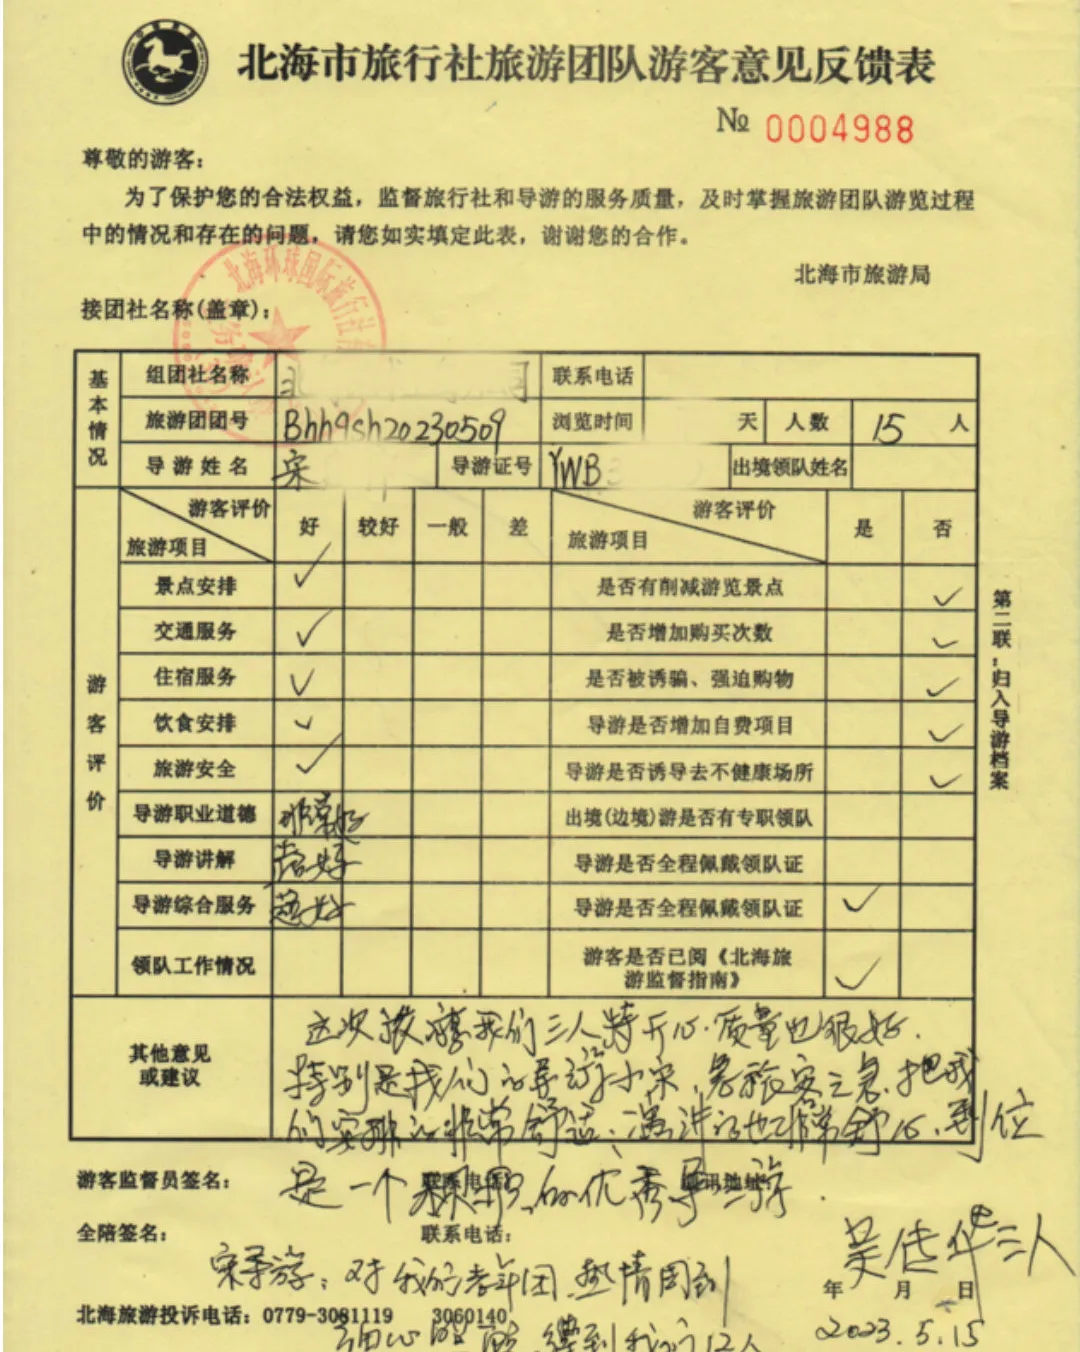 北海市旅行社旅游团队游客意见反馈表
№ 0004988
尊敬的游客：
为了保护您的合法权益，监督旅行社和导游的服务质量，及时掌握旅游团队游览过程
中的情况和存在的问题，请您如实填定此表，谢谢您的合作。
北海市旅游局
接团社名称(盖章)：
北海环球国际旅行社
基本情况
组团社名称 北 联系电话
旅游团团号 Bhhqsh20230509 浏览时间 天 人数 15 人
导游姓名 宋 导游证号 YWB 出境领队姓名
游客评价
旅游项目 游客评价 好 较好 一般 差 旅游项目 游客评价 是 否
景点安排 ✓ 是否有削减游览景点 ✓
交通服务 ✓ 是否增加购买次数 ✓
住宿服务 ✓ 是否被诱骗、强迫购物 ✓
饮食安排 ✓ 导游是否增加自费项目 ✓
旅游安全 ✓ 导游是否诱导去不健康场所 ✓
导游职业道德 非常好 出境(边境)游是否有专职领队
导游讲解 超好 导游是否全程佩戴领队证
导游综合服务 超好 导游是否全程佩戴领队证 ✓
领队工作情况 游客是否已阅《北海旅
游监督指南》 ✓
第二联：归入导游档案
其他意见
或建议
这次 我们三人特开心.质量也很好.
特别是我们的导游小宋,急旅客之急.把我
们安排的非常舒适, 讲的也非常舒心,到位
游客监督员签名： 联系电话： 通讯地址：
是一个 的优秀导游.
全陪签名： 联系电话：
吴 三人
宋导游：对我们老年团.热情周到
年 月 日
北海旅游投诉电话：0779-3081119 3060140
2023.5.15
细心 得到我们12人